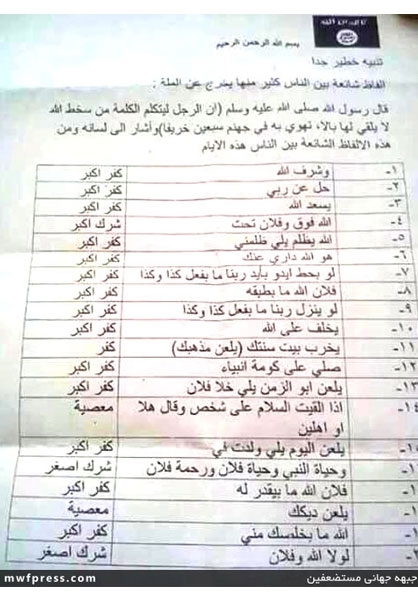 بسم الله الرحمن الرحيم
تنبيه خطير جدا
الفاظ شائعة بين الناس كثير منها يخرج عن الملة :
قال رسول الله صلى الله عليه وسلم (ان الرجل ليتكلم الكلمة من سخط الله
لا يلقي لها بالا، تهوي به في جهنم سبعين خريفا)وأشار الى لسانه ومن
هذه الالفاظ الشائعة بين الناس هذه الايام
١- وشرف الله كفر اكبر
٢- حل عن ربي كفر اكبر
٣- يسعد الله كفر اكبر
٤- الله فوق وفلان تحت شرك اكبر
٥- الله يظلم يلي ظلمني كفر اكبر
٦- هو الله داري عنك كفر اكبر
٧- لو بحط ايدو بأيد ربنا ما بفعل كذا وكذا كفر اكبر
٨- فلان الله ما بطيقه كفر اكبر
٩- لو ينزل ربنا ما بفعل كذا وكذا كفر اكبر
١٠- يخلف على الله كفر اكبر
١١- يخرب بيت سنتك (يلعن مذهبك) كفر
١٢- صلي على كومة انبياء كفر اكبر
١٣- يلعن ابو الزمن يلي خلا فلان كفر اكبر
١٤- اذا القيت السلام على شخص وقال هلا معصية
او اهلين
يلعن اليوم يلي ولدت في كفر اكبر
وحياة النبي وحياة فلان ورحمة فلان شرك اصغر
فلان الله ما بيقدر له كفر اكبر
يلعن ديكك معصية
الله ما بخلصك مني كفر اكبر
لولا الله وفلان شرك اصغر
mwfpress.com
جبهه جهانی مستضعفین